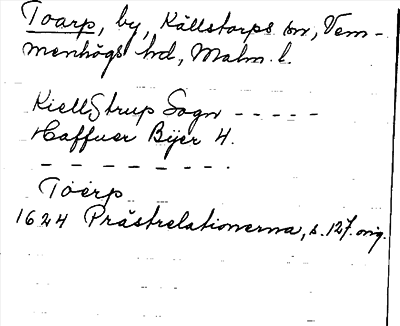 Toarp, by, Källstorps sn, Vem-
menhögs hd, Malm. l.
KiellStrup Sogn - - - - -
Haffuer Byer 4.
- - - - - - - .
Toerp
1624 Prästrelationerna, s. 127. orig.